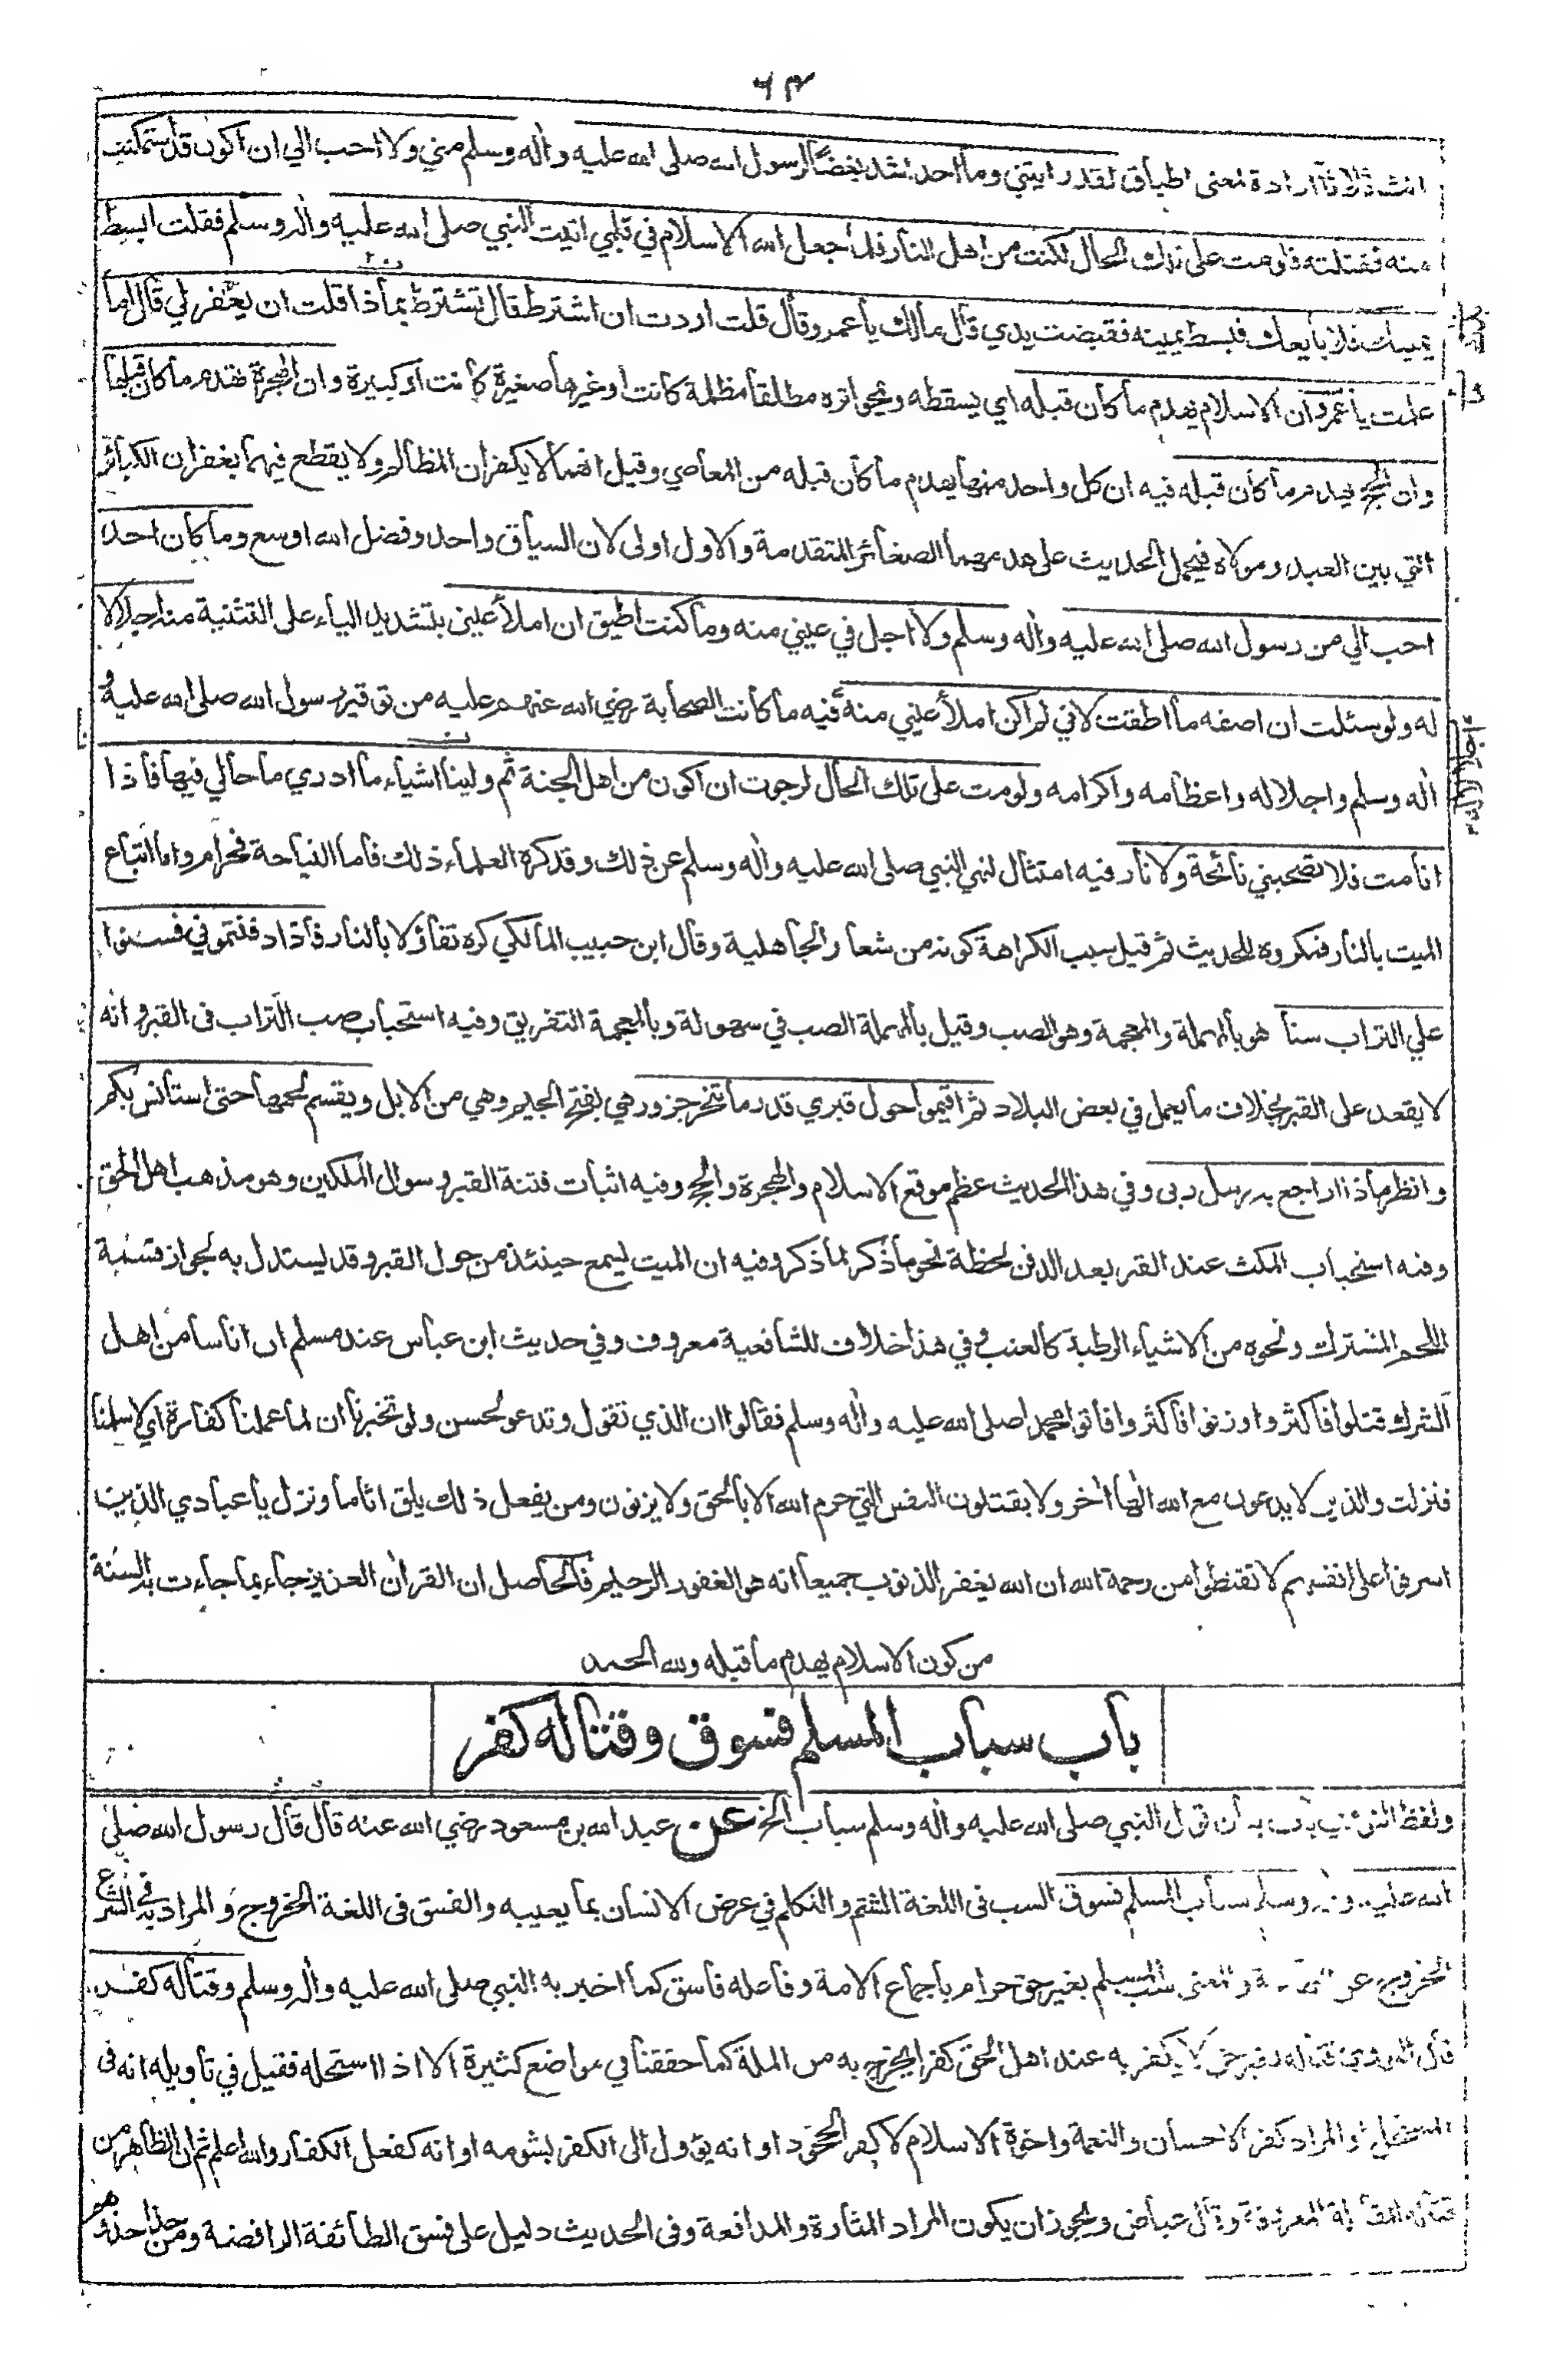 ٦٣
انث ثلاثا ارادة لمعنى اطباق لقد رايتني وما احد اشد بغضا لرسول الله صلى الله عليه واٰله وسلم مني ولا احب الي ان اكون قد استمكنت
منه فقتلته فلو مت على تلك الحال لكنت من اهل النار فلما جعل الله الاسلام في قلبي اتيت النبي صلى الله عليه واٰله وسلم فقلت ابسط
يمينك فلابايعك فبسط يمينه فقبضت يدي قال مالك يا عمرو قال قلت اردت ان اشترط قال تشترط بماذا قلت ان يغفر لي قال اما
علمت يا عمرو ان الاسلام يهدم ما كان قبله اي يسقطه ويمحو اثره مطلقا مظلمة كانت او غيرها صغيرة كانت او كبيرة وان الهجرة تهدم ما كان قبلها
وان الحج يهدم ما كان قبله فيه ان كل واحد منها يهدم ما كان قبله من المعاصي وقيل انهما لا يكفران المظالم ولا يقطع فيهما بغفران الكبائر
التي بين العبد ومولاه فيحمل الحديث على هدمهما الصغائر المتقدمة والاول اولى لان السياق واحد وفضل الله اوسع وما كان احد
احب الي من رسول الله صلى الله عليه واٰله وسلم ولا اجل في عيني منه وما كنت اطيق ان املأ عيني بتشديد الياء على التثنية منه اجلالا
له ولو سئلت ان اصفه ما اطقت لاني لم اكن املأ عيني منه فيه ما كانت الصحابة رضي الله عنهم عليه من توقير رسول الله صلى الله عليه و
اٰله وسلم واجلاله واعظامه واكرامه ولو مت على تلك الحال لرجوت ان اكون من اهل الجنة ثم ولينا اشياء ما ادري ما حالي فيها فاذا
انا مت فلا تصحبني نائحة ولا نار فيه امتثال لنهي النبي صلى الله عليه واٰله وسلم عن ذلك وقد كره العلماء ذلك فاما النياحة فحرام واما اتباع
الميت بالنار فمكروه للحديث ثم قيل سبب الكراهة كونه من شعار الجاهلية وقال ابن حبيب المالكي كره تفاؤلا بالنار فاذا دفنتموني فسنوا
علي التراب سنا هو بالمهملة والمعجمة وهو الصب وقيل بالمهملة الصب في سهولة وبالمعجمة التفريق وفيه استحباب صب التراب في القبر وانه
لا يقعد على القبر بخلاف ما يعمل في بعض البلاد ثم اقيموا حول قبري قدر ما تنحر جزور هي بفتح الجيم وهي من الابل ويقسم لحمها حتى استأنس بكم
وانظر ماذا اراجع به رسل ربى وفي هذا الحديث عظم موقع الاسلام والهجرة والحج وفيه اثبات فتنة القبر وسوال الملكين وهو مذهب اهل الحق
وفيه استحباب المكث عند القبر بعد الدفن لحظة نحو ما ذكر لما ذكر وفيه ان الميت يسمع حينئذ من حول القبر وقد يستدل به لجواز قسمة
اللحم المشترك ونحوه من الاشياء الرطبة كالعنب وفي هذا خلاف للشافعية معروف وفي حديث ابن عباس عند مسلم ان اناسا من اهل
الشرك قتلوا فاكثروا وزنوا فاكثروا فاتوا محمدا صلى الله عليه واٰله وسلم فقالوا ان الذي تقول وتدعو لحسن ولو تخبرنا ان لما عملنا كفارة اي لاسلمنا
فنزلت والذين لا يدعون مع الله الها اٰخر ولا يقتلون النفس التي حرم الله الا بالحق ولا يزنون ومن يفعل ذلك يلق اثاما ونزل يا عبادي الذين
اسرفوا على انفسهم لا تقنطوا من رحمة الله ان الله يغفر الذنوب جميعا انه هو الغفور الرحيم فالحاصل ان القراٰن العزيز جاء بما جاءت به السنة
من كون الاسلام يهدم ما قبله ولله الحمد
باب سباب المسلم فسوق وقتاله كفر
ولفظ النووي باب بيان قول النبي صلى الله عليه واٰله وسلم سباب الخ عن عبد الله بن مسعود رضي الله عنه قال قال رسول الله صلى
الله عليه واٰله وسلم سباب المسلم فسوق السب فى اللغة الشتم والتكلم في عرض الانسان بما يعيبه والفسق فى اللغة الخروج والمراد به في الشرع
الخروج عن الطاعة والمعنى سب المسلم بغير حق حرام باجماع الامة وفاعله فاسق كما اخبر به النبي صلى الله عليه واٰله وسلم وقتاله كفر
قال النووي قتاله بغير حق لا يكفر به عند اهل الحق كفرا يخرج به من الملة كما حققنا في مواضع كثيرة الا اذا استحله فقيل في تاويله انه فى
المستحل او المراد كفر الاحسان والنعمة واخوة الاسلام لا كفر الجحود او انه يؤول الى الكفر بشومه او انه كفعل الكفار والله اعلم ثم ان الظاهر من
قتاله المقاتلة المعروفة وقال عياض ويجوز ان يكون المراد المشارة والمدافعة وفى الحديث دليل على فسق الطائفة الرافضة ومن حذا حذوهم